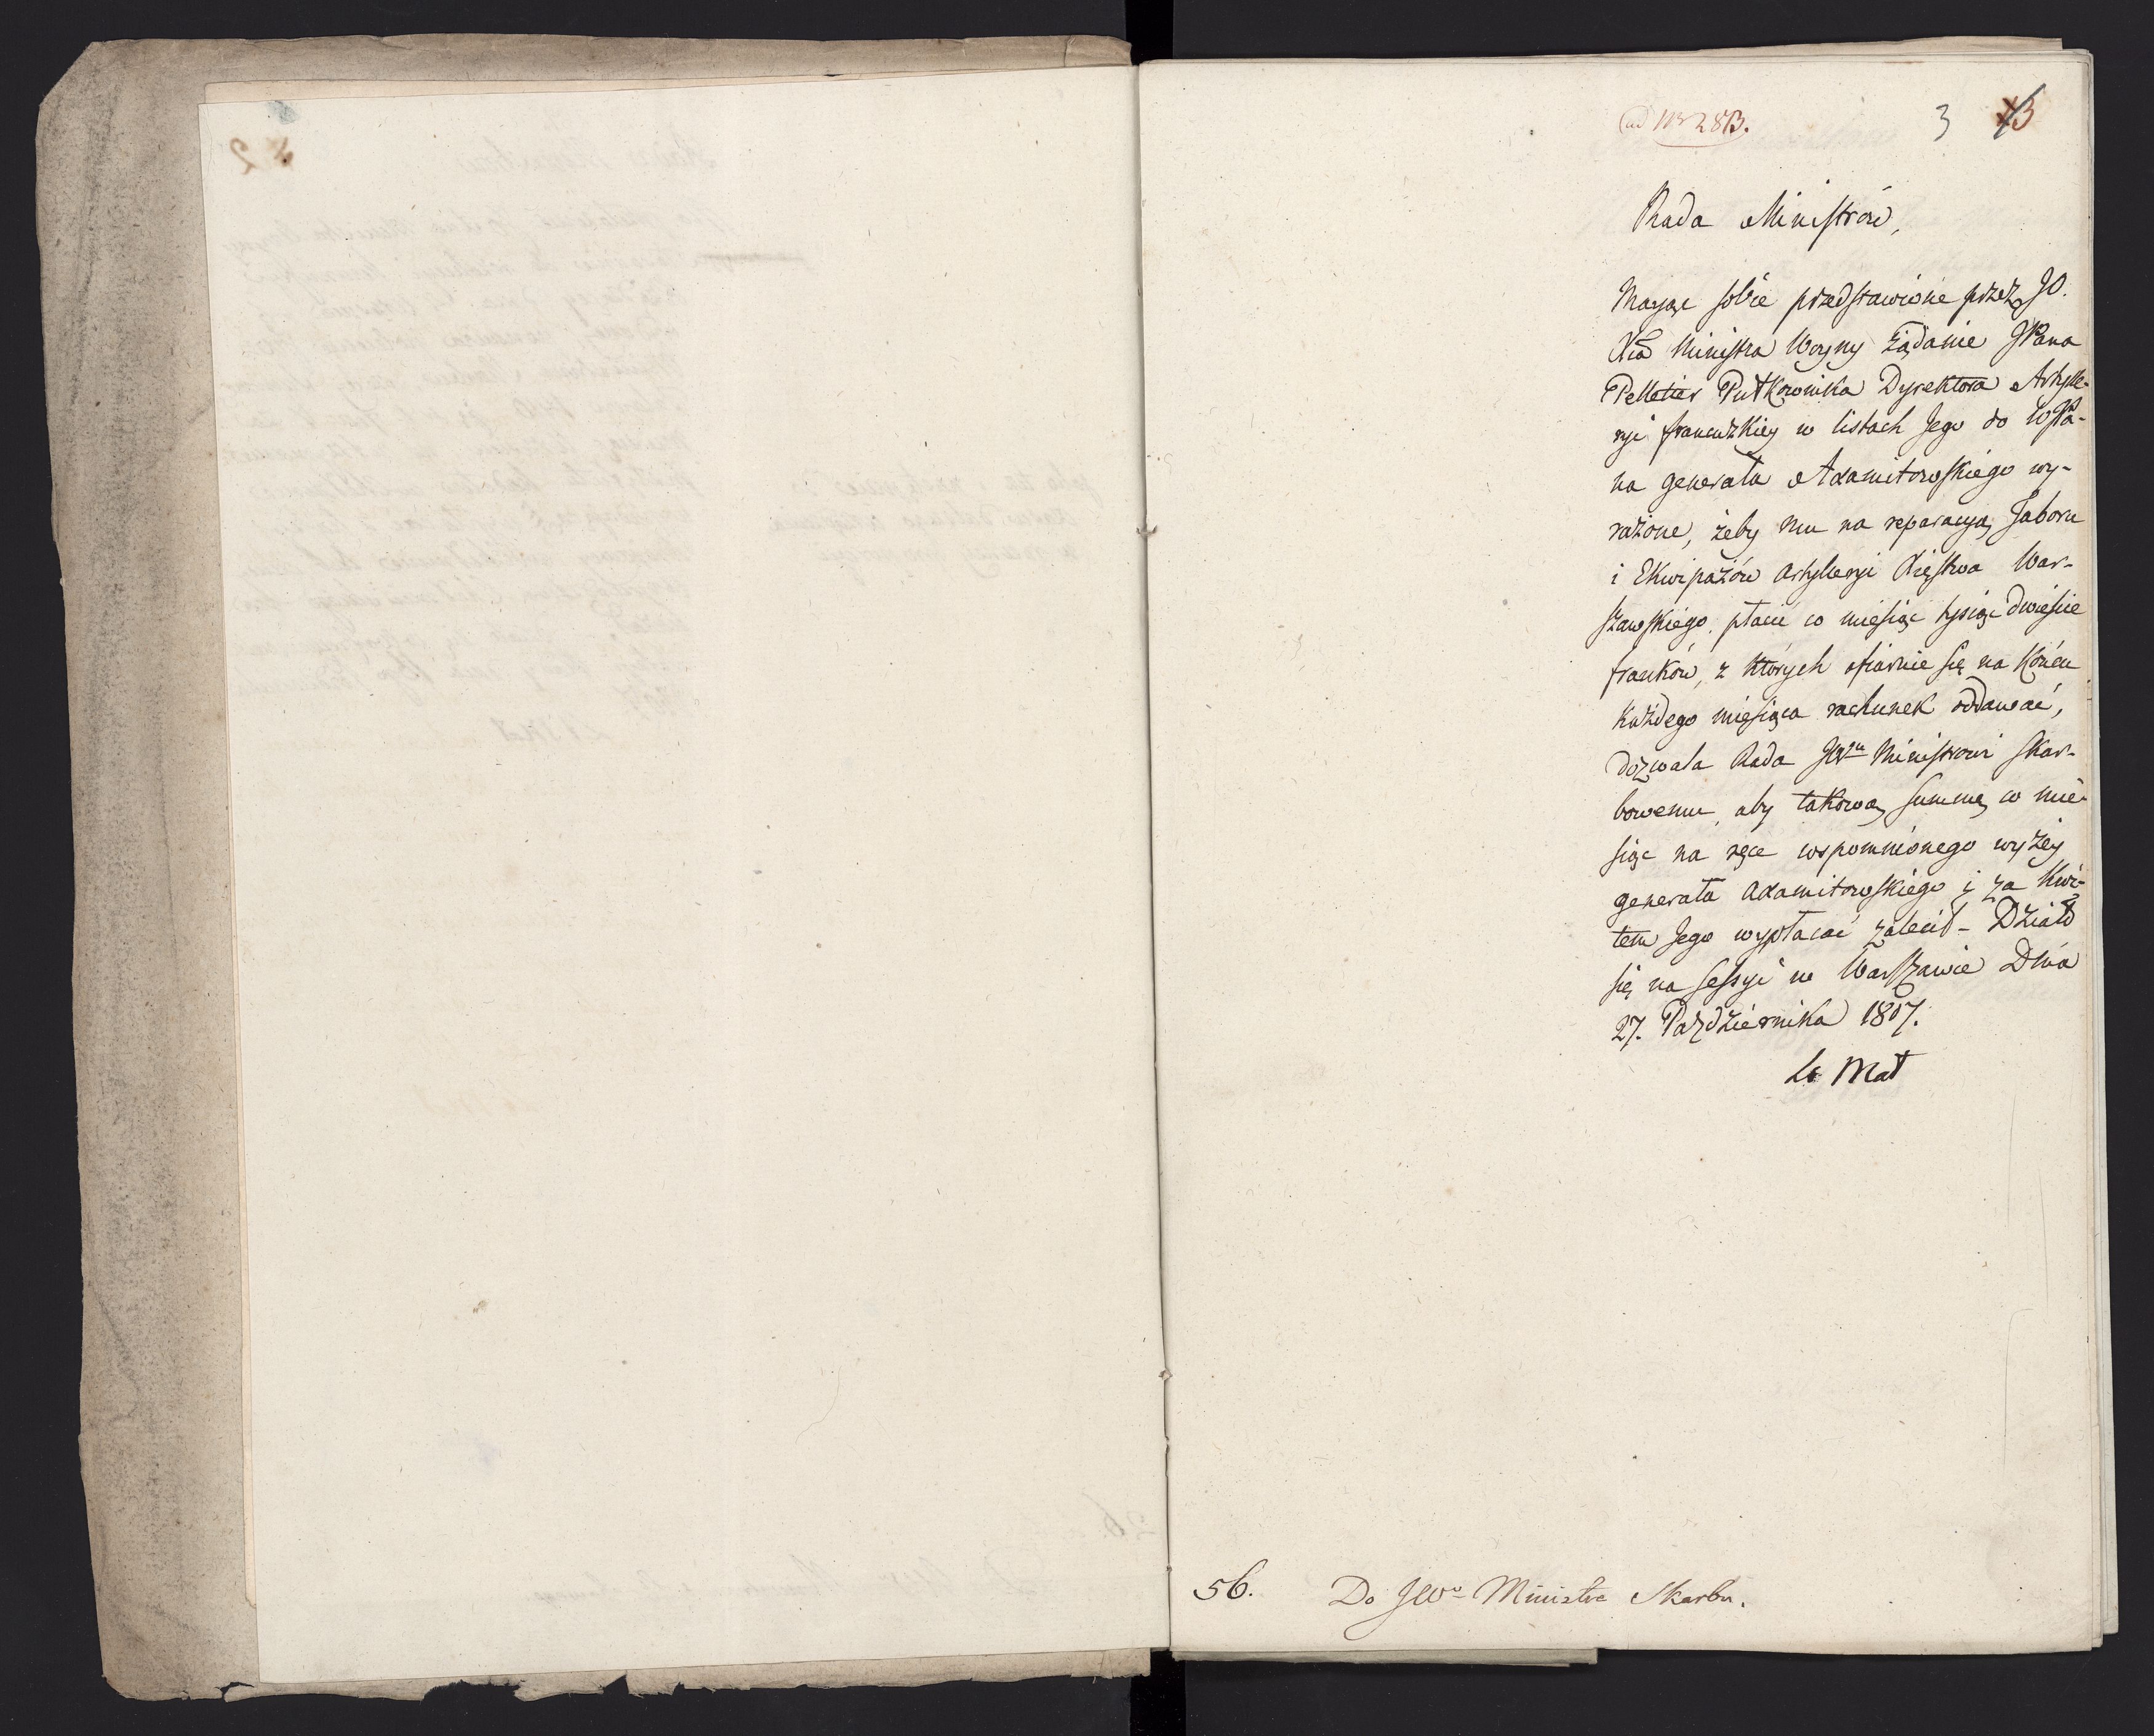 ad Nr 2813.
3
Rada Ministrów,
Mając sobie przedstawione przez JO.
Xcia Ministra Woyny żądanie JPana
Pelletier Pułkownika Dyrektora Artylle-
ryi francuzkiey w listach Jego do WJPa-
na generała Axamitowskiego wy-
rażone, żeby mu na reparacyą Taboru
i Ekwipażów Artylleryi Xięstwa War-
szawskiego płacić co miesiąc tysiąc dwieście
franków, z których ofiaruie się na końcu
każdego miesiąca rachunek oddawać,
dozwala Rada JWmu Ministrowi Skar-
bowemu, aby takową summę co mie-
siąc na ręce wspomnionego wyżey
generała Axamitowskiego i za kwi-
tem Jego wypłacać zalecił – Działo
się na Sessyi w Warszawie Dnia
27. Października 1807.
56. Do JWo Ministra Skarbu.